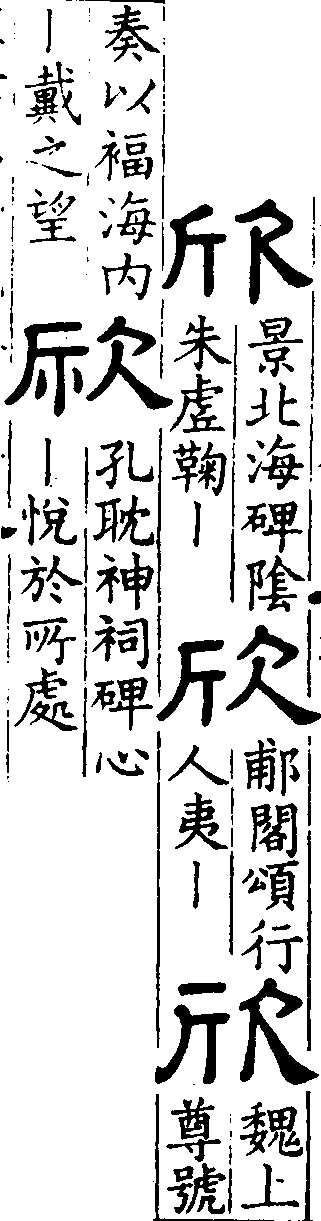 欣景北海碑陰
朱虗鞠丨
欣郙閣頌行
人夷丨
欣魏上
尊號
奏以福海內
丨戴之望
欣孔耽神祠碑心
丨悅於所處